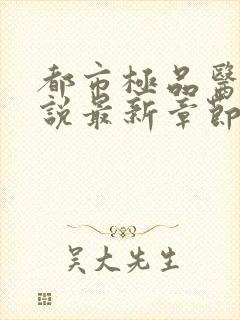 都市極品醫
說最新章節
吳大先生